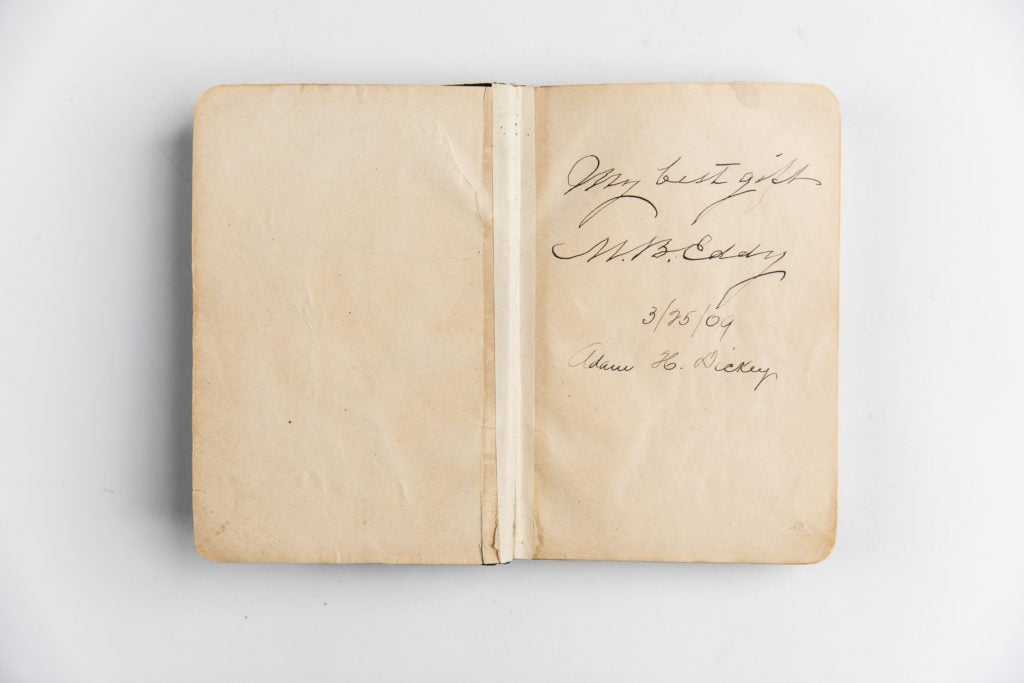 My best gift
M.B. Eddy
3/25/09
Adam H. Dickey